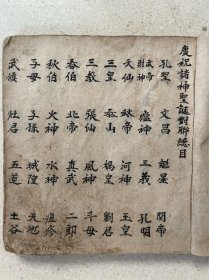 慶祝諸神聖誕對聯總目
孔聖 文昌 魁星 關帝
財神 瘟神 三義 孔明
天仙 帝 河神 玉皇
三皇 泰山 媧皇 劉君
三教 張仙 風神 斗母
春伯 北帝 真武 二郎
狄伯 火神 水神 瘟疹
子母 子孫 城隍 天地
武候 灶君 五道 土谷